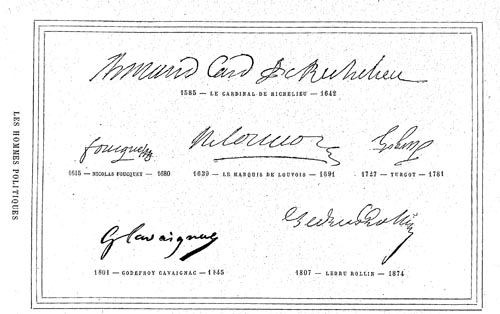 LES HOMMES POLITIQUES
Armand Card de Richelieu
1585 — LE CARDINAL DE RICHELIEU — 1642
foucquet
1615 — NICOLAS FOUCQUET — 1680
1639 — LE MARQUIS DE LOUVOIS — 1691
1727 — TURGOT — 1781
G Cavaignac
1801 — GODEFROY CAVAIGNAC — 1845
Ledru Rollin
1807 — LEDRU ROLLIN — 1874